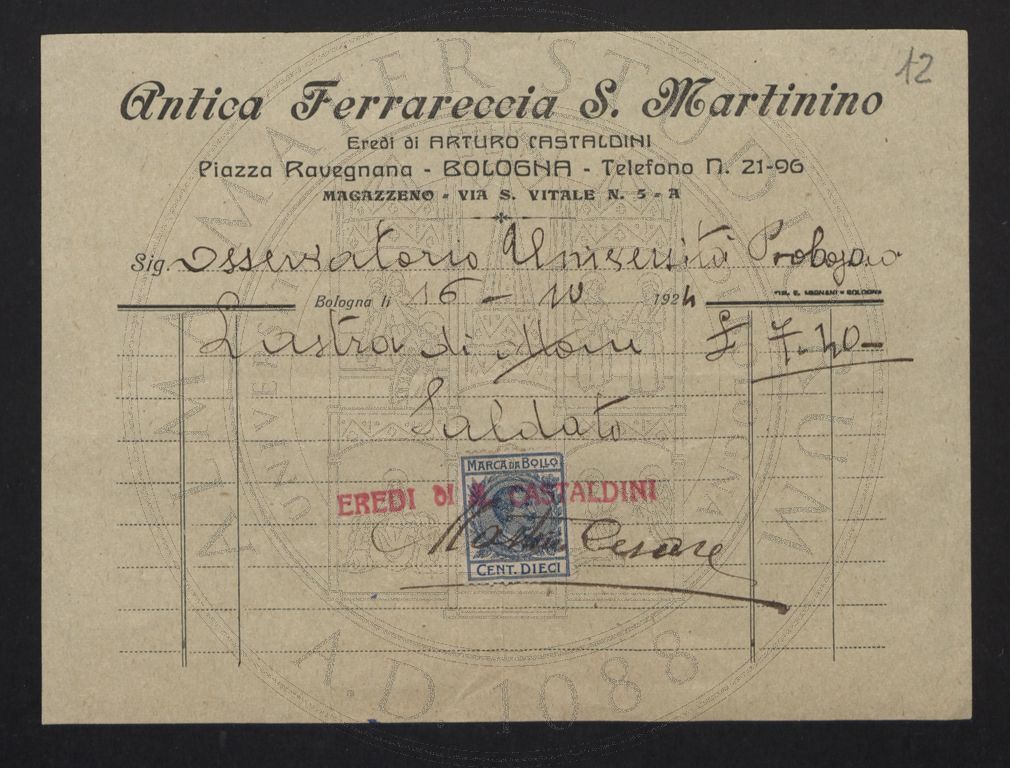 12
Antica Ferrareccia S. Martinino
Eredi di ARTURO CASTALDINI
Piazza Ravegnana - BOLOGNA - Telefono N. 21-96
MAGAZZENO - VIA S. VITALE N. 5 - A
Sig. Osservatorio Università
TIP. C. MEGNANI - BOLOGNA
Bologna li 16 - 10 1924
Lastra di £ 7.40
Saldato
MARCA DA BOLLO
EREDI di A. CASTALDINI
Cesare
CENT. DIECI
ALMA MATER STUDIORUM
A.D. 1088